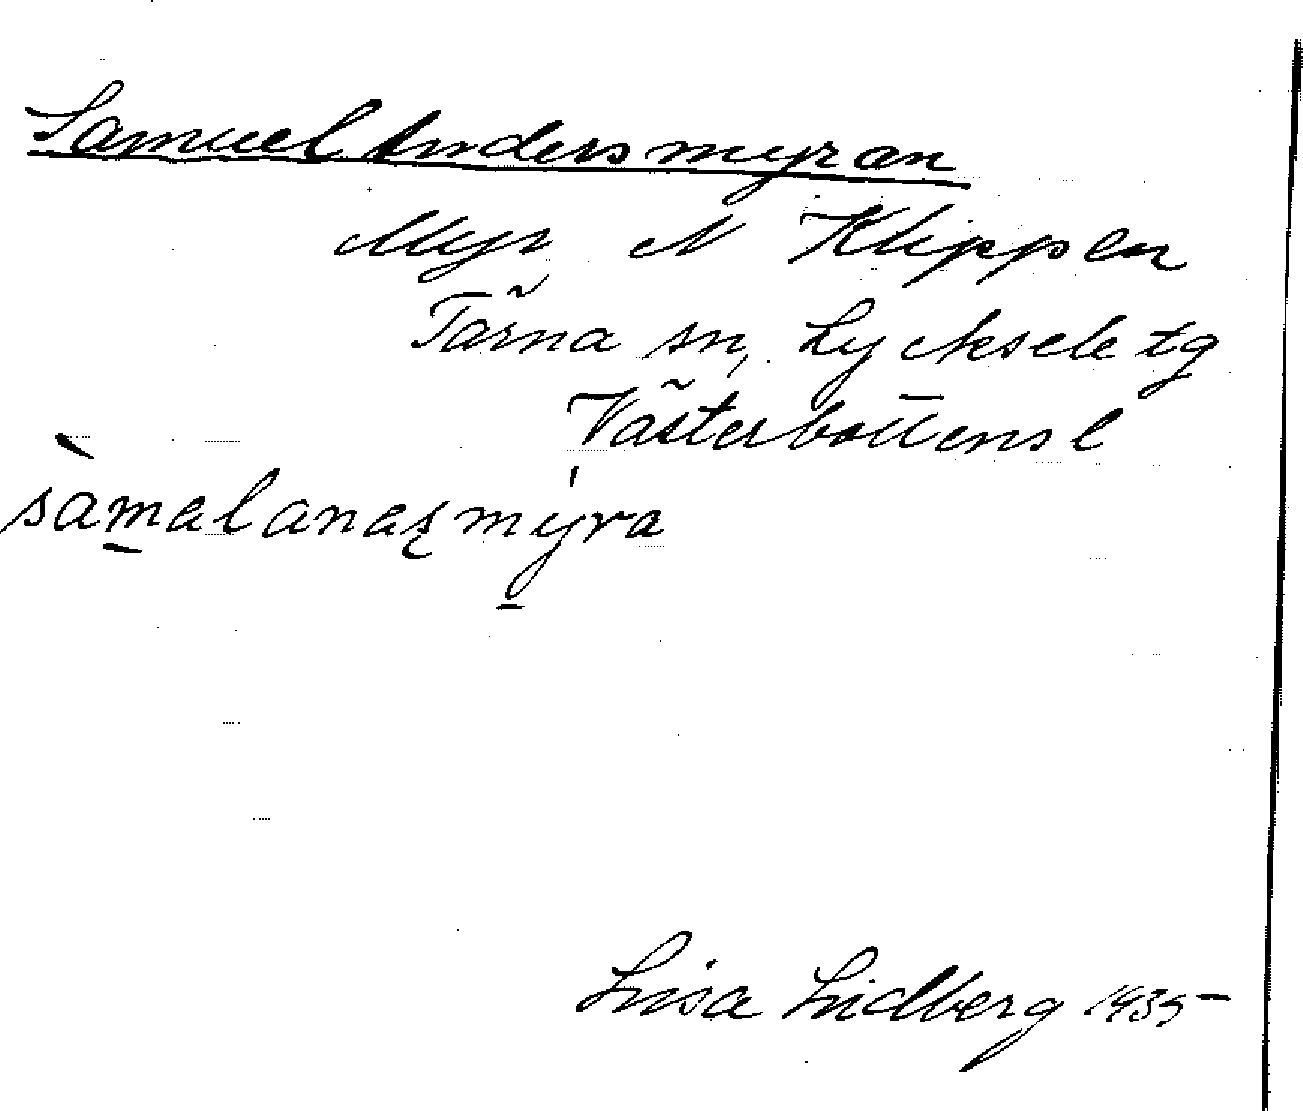 Samuel Andersmyran
Myr N Klippen
Tärna sn, Lycksele tg
Västerbottens l
sàmalanaʂmy̍ra
Lisa Lidberg 1935